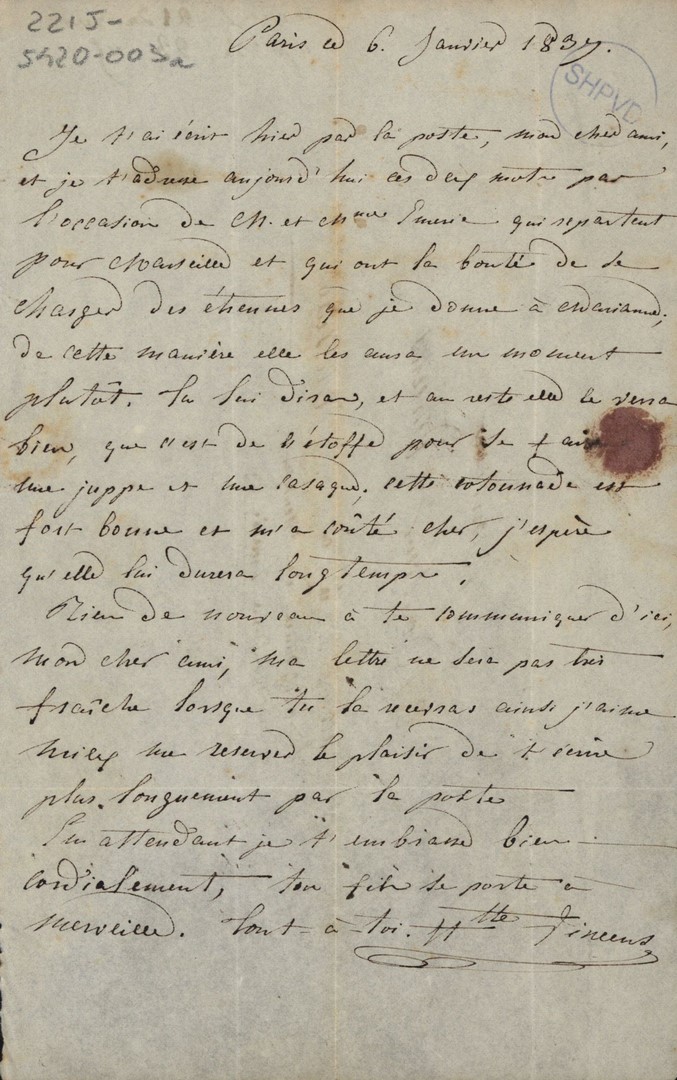 221J-
5420-003a
SHPVD
Paris ce 6. Janvier 1837.
Je t'ai écrit hier par la poste, mon cher ami,
et je t'adresse aujourd'hui ces deux mots par
l'occasion de M. et Mme Emerie qui repartent
pour Marseille et qui ont la bonté de se
charger des étrennes que je donne à Marianne;
de cette manière elle les aura un moment
plutôt. Tu lui diras, et au reste elle le verra
bien, que c'est de l'étoffe pour se faire
une juppe et une casaque; cette cotonnade est
fort bonne et m'a coûté cher, j'espère
qu'elle lui durera longtemps.
Rien de nouveau à te communiquer d'ici,
mon cher ami, ma lettre ne sera pas très
fraîche lorsque tu la recevras ainsi j'aime
mieux me reserver le plaisir de t'écrire
plus longuement par la poste
En attendant je t'embrasse bien
cordialement, ton fils se porte à
merveille. Tout à toi. Hte Vincens